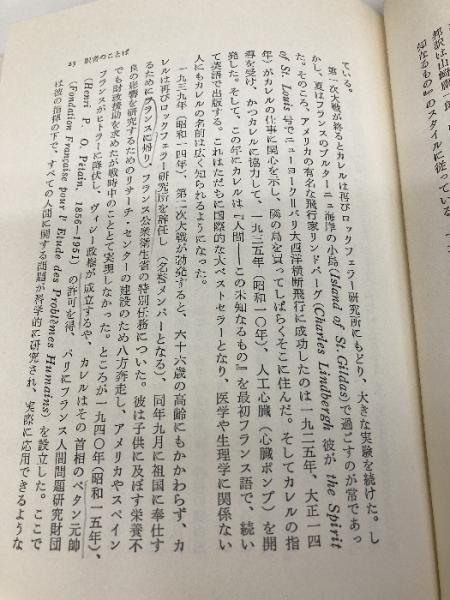 邦訳は山崎庸一郎
知なるもの』のスタイルに従っている
ている。
第一次大戦が終るとカレルは再びロックフェラー研究所にもどり、大きな実験を続けた。し
かし、夏はフランスのブルターニュ海岸の小島 (Island of St. Gildas) で過ごすのが常であっ
た。そのころ、アメリカの有名な飛行家リンドバーグ (Charles Lindbergh 彼が the Spirit
of St. Louis 号でニューヨーク＝パリ大西洋横断飛行に成功したのは一九二五年、大正一四
年) がカレルの仕事に関心を示し、隣の島を買ってしばらくそこに住んだ。そしてカレルの指
導を受け、かつカレルに協力して、一九三五年（昭和一〇年）、人工心臓（心臓ポンプ）を開
発した。そして、この年にカレルは『人間――この未知なるもの』を最初フランス語で、続い
て英語で出版する。これはただちに国際的な大ベストセラーとなり、医学や生理学に関係ない
人にもカレルの名前は広く知られるようになった。
一九三九年（昭和一四年）、第二次大戦が勃発すると、六十六歳の高齢にもかかわらず、カ
レルは再びロックフェラー研究所を辞任し（名誉メンバーとなる）、同年九月に祖国に奉仕す
るためにフランスに帰り、フランス公衆衛生省の特別任務についた。彼は子供に及ぼす栄養不
良の影響を研究するためのリサーチ・センターの建設のため八方奔走し、アメリカやスペイン
でも財政援助を求めたが戦時中のこととて実現しなかった。ところが一九四〇年（昭和一五年）、
フランスがヒトラーに降伏し、ヴィシー政権が成立するや、カレルはその首相のペタン元帥
(Henri P. O. Pétain, 1856―1951) の許可を得、パリにフランス人間問題研究財団
(Fondation Française pour l'Etude des Problèmes Humains) を設立した。ここで
は彼の指導の下で、すべての人間に関する問題が科学的に研究され、実際に応用できるような
25 訳者のことば